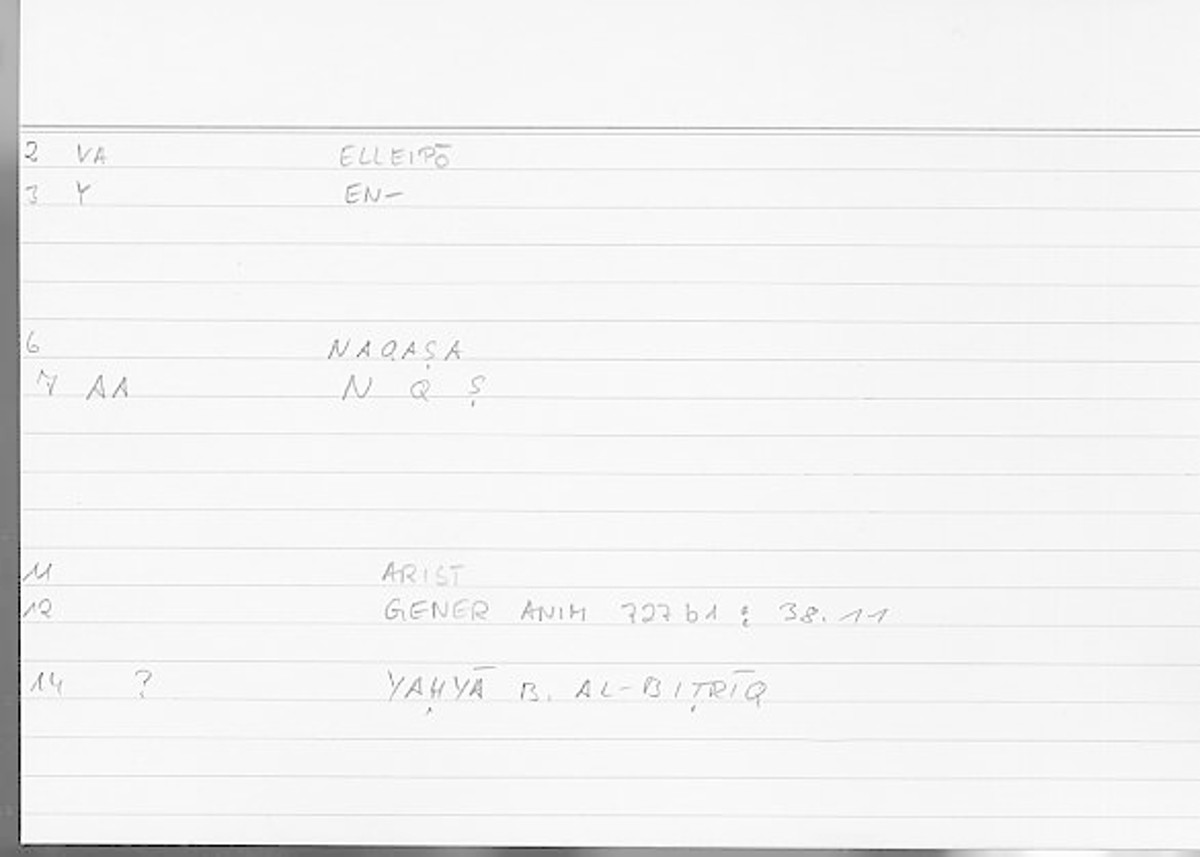 2 VA ELLEIPŌ
3 Y EN-
6 NAQAṢA
7 AA N Q Ṣ
11 ARIST
12 GENER ANIM 727b1 : 38.11
14 ? YAḤYĀ B. AL-BIṬRĪQ